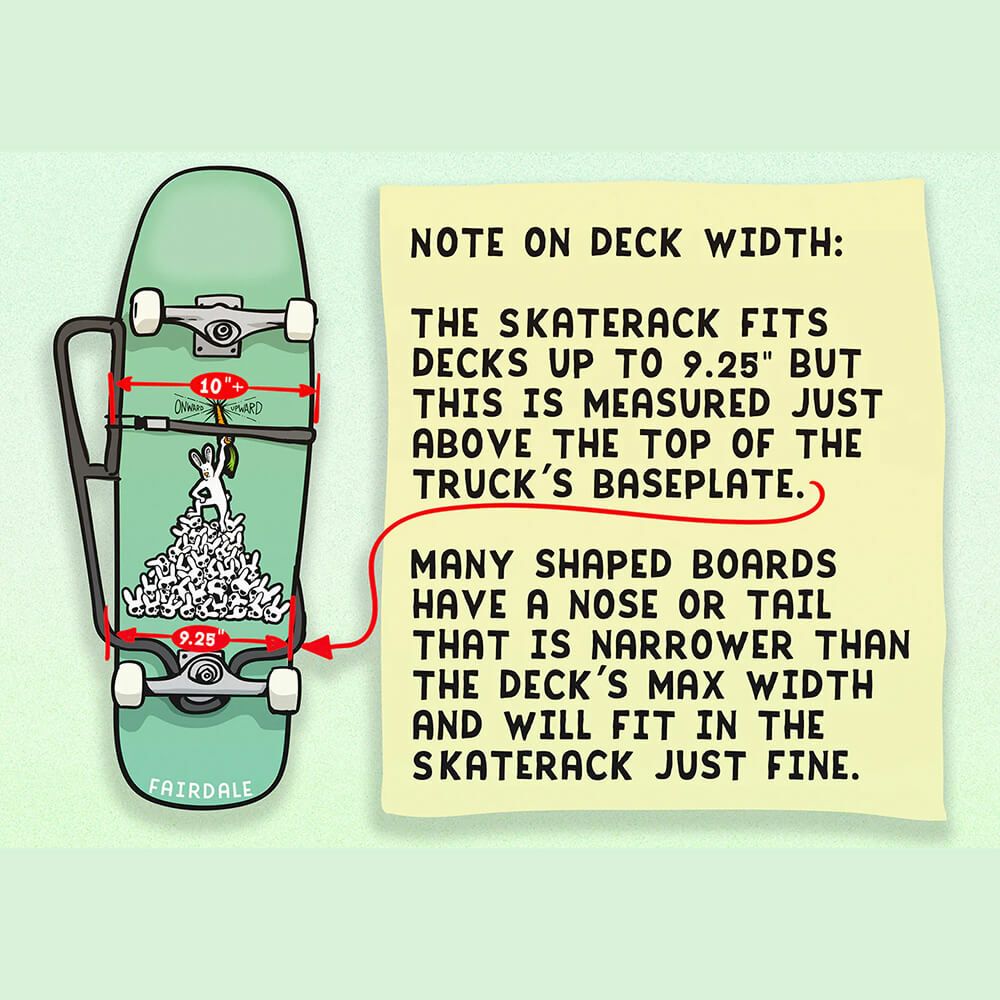 NOTE ON DECK WIDTH:
THE SKATERACK FITS
DECKS UP TO 9.25" BUT
THIS IS MEASURED JUST
ABOVE THE TOP OF THE
TRUCK'S BASEPLATE.
MANY SHAPED BOARDS
HAVE A NOSE OR TAIL
THAT IS NARROWER THAN
THE DECK'S MAX WIDTH
AND WILL FIT IN THE
SKATERACK JUST FINE.
10"+
ONWARD UPWARD
9.25"
FAIRDALE